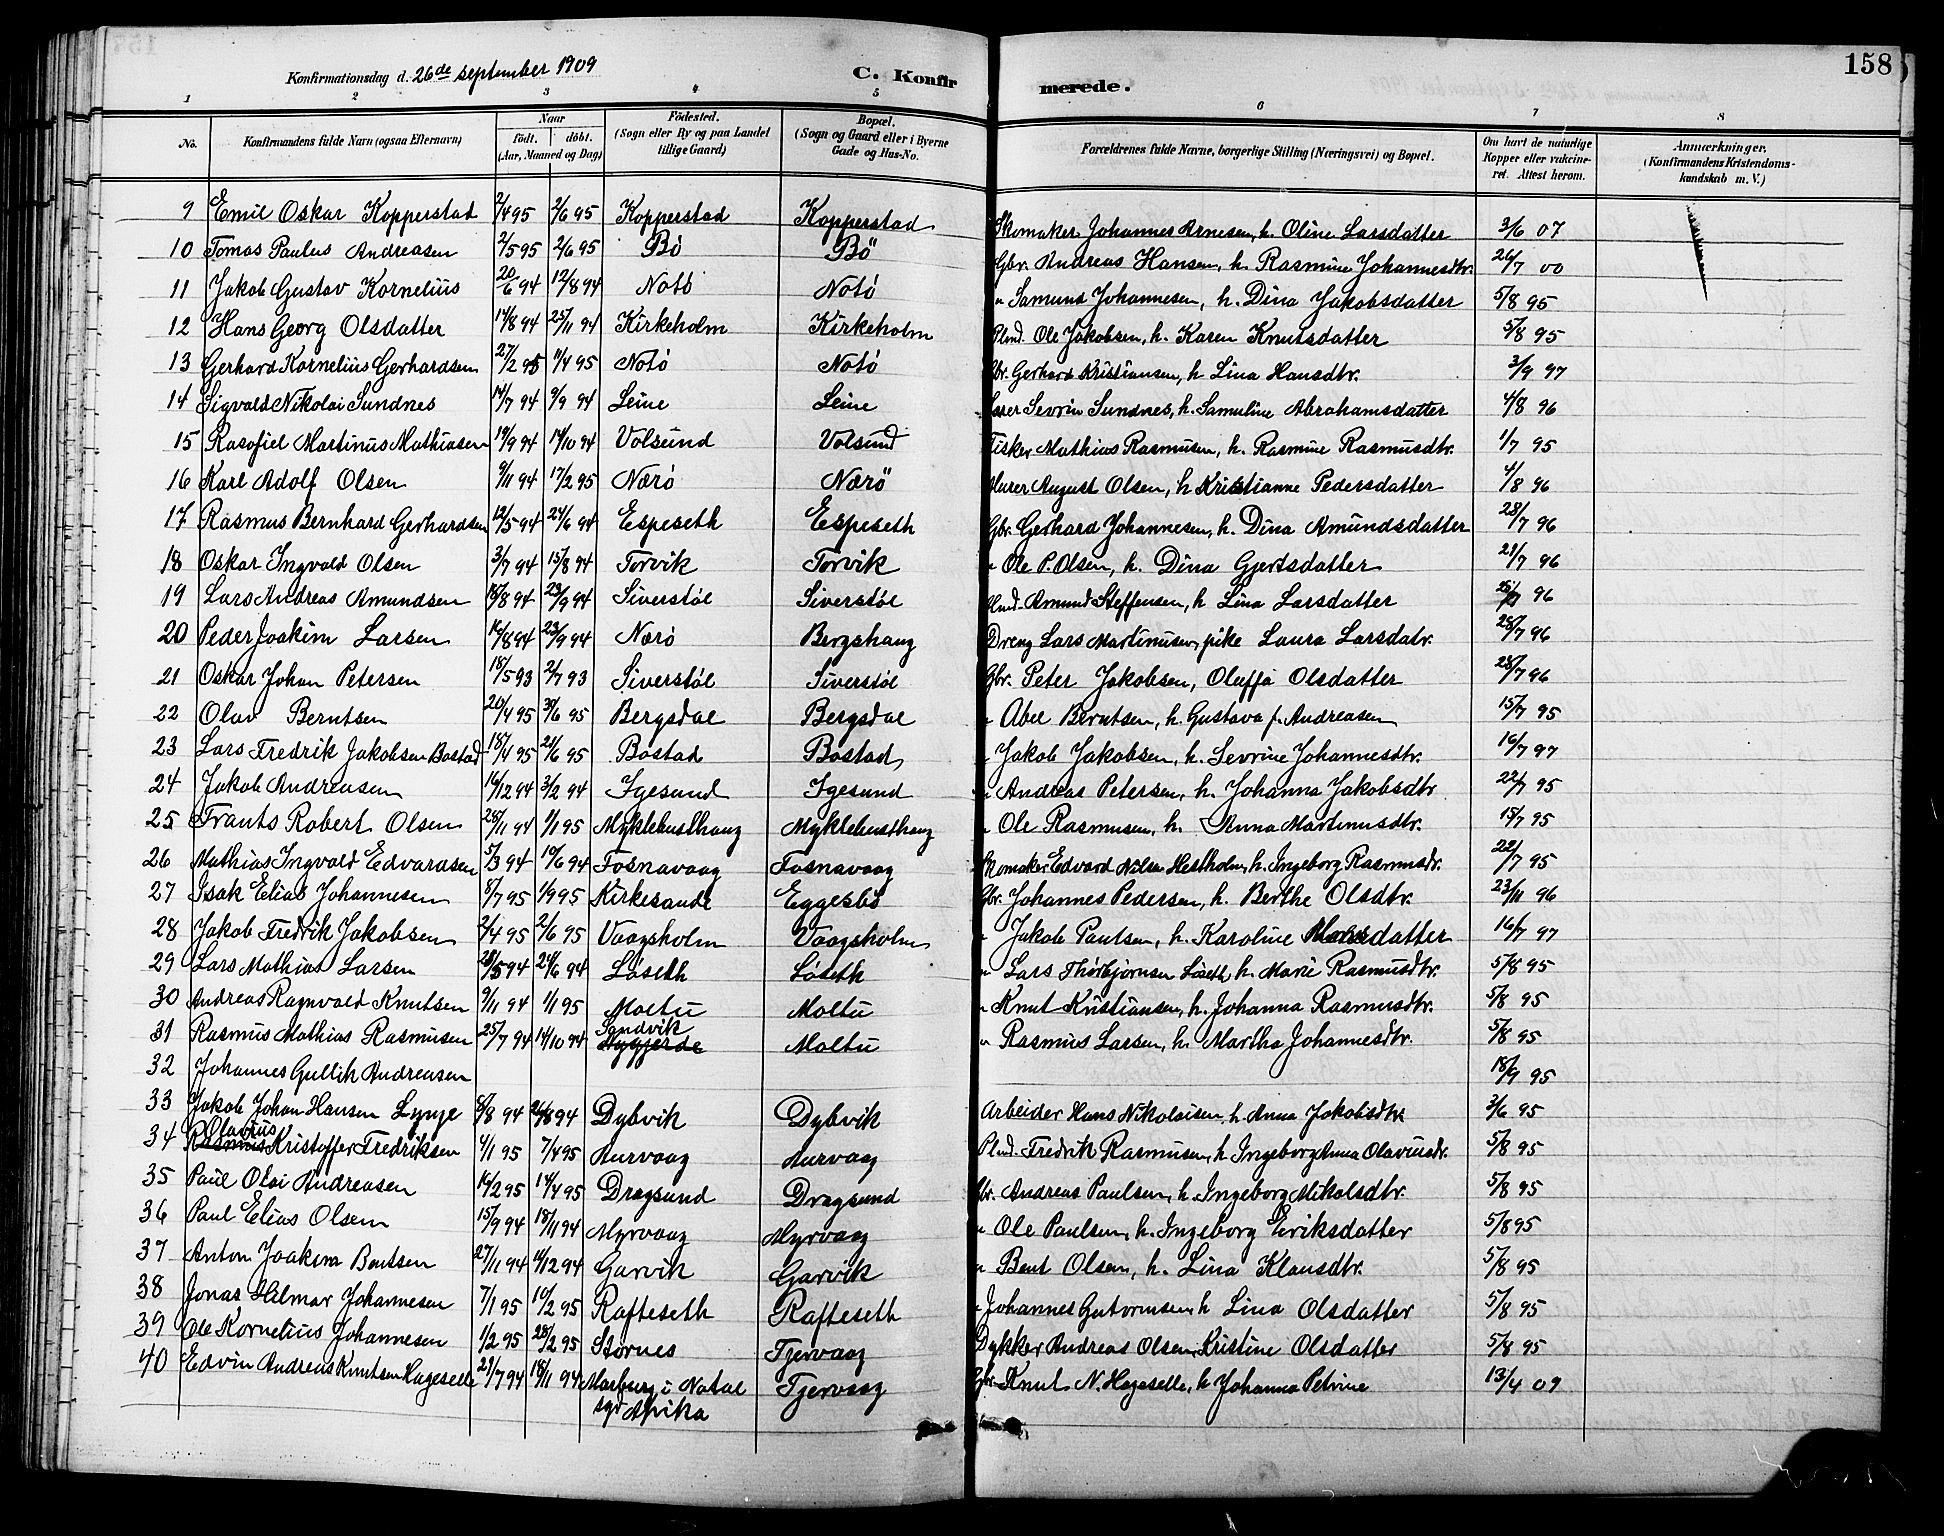 158
Konfirmationsdag d. 26de september 1909 C. Konfirmerede.
1 2 3 4 5 6 7 8
No. Konfirmandens fulde Navn (ogsaa Efternavn) Naar födt. döbt. (Aar, Maaned og Dag) Födested. (Sogn eller By og paa Landet tillige Gaard) Bopæl. (Sogn og Gaard eller i Byerne Gade og Hus-No. Forældrenes fulde Navne, borgerlige Stilling (Næringsvei) og Bopæl. Om havt de naturlige Kopper eller vakcineret. Attest herom. Anmærkninger. (Konfirmandens Kristendomskundskab m. V.)
9 Emil Oskar Kopperstad 2/4 95 2/6 95 Kopperstad Kopperstad Skomaker Johannes Arnesen, h. Oline Larsdatter 3/6 07
10 Tomas Paulus Andreasen 2/5 95 2/6 95 Bö Bö Gbr. Andreas Hansen, h. Rasmine Johannesdtr. 26/7 00
11 Jakob Gustav Kornelius 20/6 94 12/8 94 Notö Notö " Samund Johannesen, h. Dina Jakobsdatter 5/8 95
12 Hans Georg Olsdatter 14/8 94 25/11 94 Kirkeholm Kirkeholm Plmd. Ole Jakobsen, h. Karen Knutsdatter 5/8 95
13 Gerhard Kornelius Gerhardsen 27/2 95 11/4 95 Notö Notö Gbr. Gerhard Kristiansen, h Lina Hansdtr. 3/9 97
14 Sigvald Nikolai Sundnes 14/7 94 9/9 94 Leine Leine Lærer Sevrin Sundnes, h. Samuline Abrahamsdatter 4/8 96
15 Rasofiel Martinus Mathiasen 19/9 94 14/10 94 Volsund Volsund Fisker Mathias Rasmusen, h. Rasmine Rasmusdtr. 1/7 95
16 Karl Adolf Olsen 9/11 94 17/2 95 Nærö Nærö Murer August Olsen, h Kristianne Pedersdatter 4/8 96
17 Rasmus Bernhard Gerhardsen 12/5 94 24/6 94 Espeseth Espeseth Gbr. Gerhard Johannesen, h. Dina Amundsdatter 28/7 96
18 Oskar Ingvald Olsen 3/7 94 15/8 94 Torvik Torvik " Ole P. Olsen, h. Dina Gjertsdatter 21/7 96
19 Lars Andreas Amundsen 18/8 94 23/9 94 Siverstöl Siverstöl Plmd. Amund Steffensen, h Lina Larsdatter 96
20 Peder Joakim Larsen 16/8 94 23/9 94 Nærö Bergshaug Dreng Lars Martinusen, pike Laura Larsdatr. 28/7 96
21 Oskar Johan Petersen 18/5 93 2/7 93 Siverstöl Siverstöl Gbr. Peter Jakobsen, Oluffa Olsdatter 28/7 96
22 Olav Berntsen 20/4 95 3/6 95 Bergsdal Bergsdal " Abel Berntsen, h. Gustava f. Andreasen 15/7 95
23 Lars Fredrik Jakobsen Bostad 18/4 95 2/6 95 Bostad Bostad " Jakob Jakobsen, h. Sevrine Johannesdtr. 16/7 97
24 Jakob Andreasen 16/12 94 3/2 94 Igesund Igesund " Andreas Petersen, h. Johanna Jakobsdtr 22/7 95
25 Frants Robert Olsen 28/11 94 1/1 95 Myklebusthaug Myklebusthaug " Ole Rasmusen, h. Anna Martinusdtr. 15/7 95
26 Mathias Ingvald Edvardsen 5/3 94 10/6 94 Fosnavaag Fosnavaag Skomaker Edvard Nilsen Hestholm, h. Ingeborg Rasmusdr. 22/7 95
27 Isak Elias Johannesen 8/7 95 1/9 95 Kirkesande Eggesbö Gbr. Johannes Pedersen, h. Berthe Olsdtr. 23/11 96
28 Jakob Fredrik Jakobsen 2/4 95 2/6 95 Vaagsholm Vaagsholm " Jakob Paulsen, h. Karoline 16/7 97
29 Lars Mathias Larsen 28/5 94 24/6 94 Löseth Löseth " Lars Thorbjörnsen Löseth, h. Marie Rasmusdtr. 5/8 95
30 Andreas Ragnvald Knutsen 9/11 94 1/1 95 Moltu Moltu " Knut Kristiansen, h. Johanna Rasmusdtr. 5/8 95
31 Rasmus Mathias Rasmusen 25/7 94 14/10 94 Sandvik Moltu " Rasmus Larsen, h. Martha Johannesdtr. 5/8 95
32 Johannes Gullik Andreasen 18/9 95
33 Jakob Johan Hansen Lynge 8/8 94 26/8 94 Dybvik Dybvik Arbeider Hans Nikolaisen, h. Anna Jakobsdtr 3/6 95
34 Rasmus Olavius Kristoffer Fredriksen 4/1 95 7/4 95 Aurvaag Aurvaag Plmd. Fredrik Rasmusen, h. Ingeborg Anna Olaviusdr. 5/8 95
35 Paul Olai Andreasen 16/2 95 14/4 95 Dragsund Dragsund Gbr. Andreas Paulsen, h. Ingeborg Nikolsdtr. 5/8 95
36 Paul Elias Olsen 15/9 94 18/11 94 Myrvaag Myrvaag " Ole Paulsen, h. Ingeborg Eriksdatter 5/8 95
37 Anton Joakim Bentsen 27/11 94 14/12 94 Garvik Garvik " Bent Olsen, h. Lina Klausdtr. 5/8 95
38 Jonas Hilmar Johannesen 7/1 95 10/2 95 Rafteseth Rafteseth " Johannes Gutormsen, h Lina Olsdatter 5/8 95
39 Ole Kornelius Johannesen 1/2 95 28/2 95 Störnes Tjervaag Dykker Andreas Olsen, Kristine Olsdatter 5/8 95
40 Edvin Andreas Knutsen Hageselle 21/7 94 18/11 94 Marburg i Natal syd Afrika Tjervaag Gbr. Knut N. Hageselle, h Johanna Petrine 13/4 09